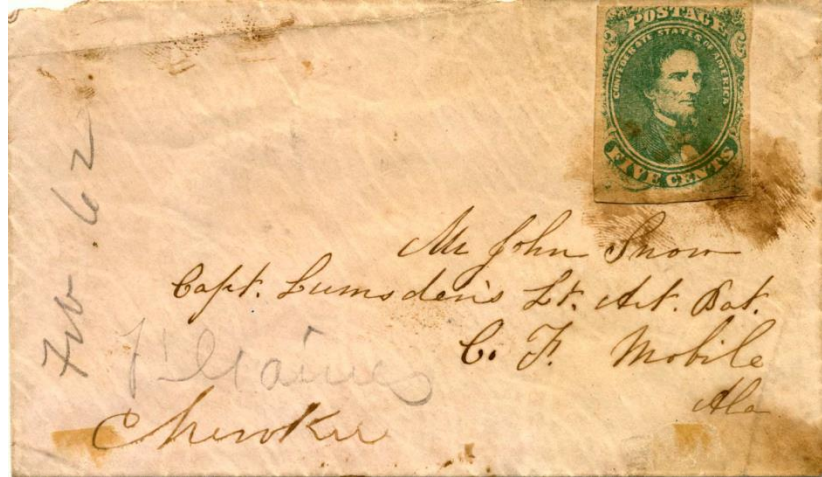 POSTAGE
CONFEDERATE STATES OF AMERICA
FIVE CENTS
Feb. 62
Mr John Snow
Capt. Lumsden's Lt. Art. Bat.
C. F. Mobile
Ala
Ft Gaines
Cherokee